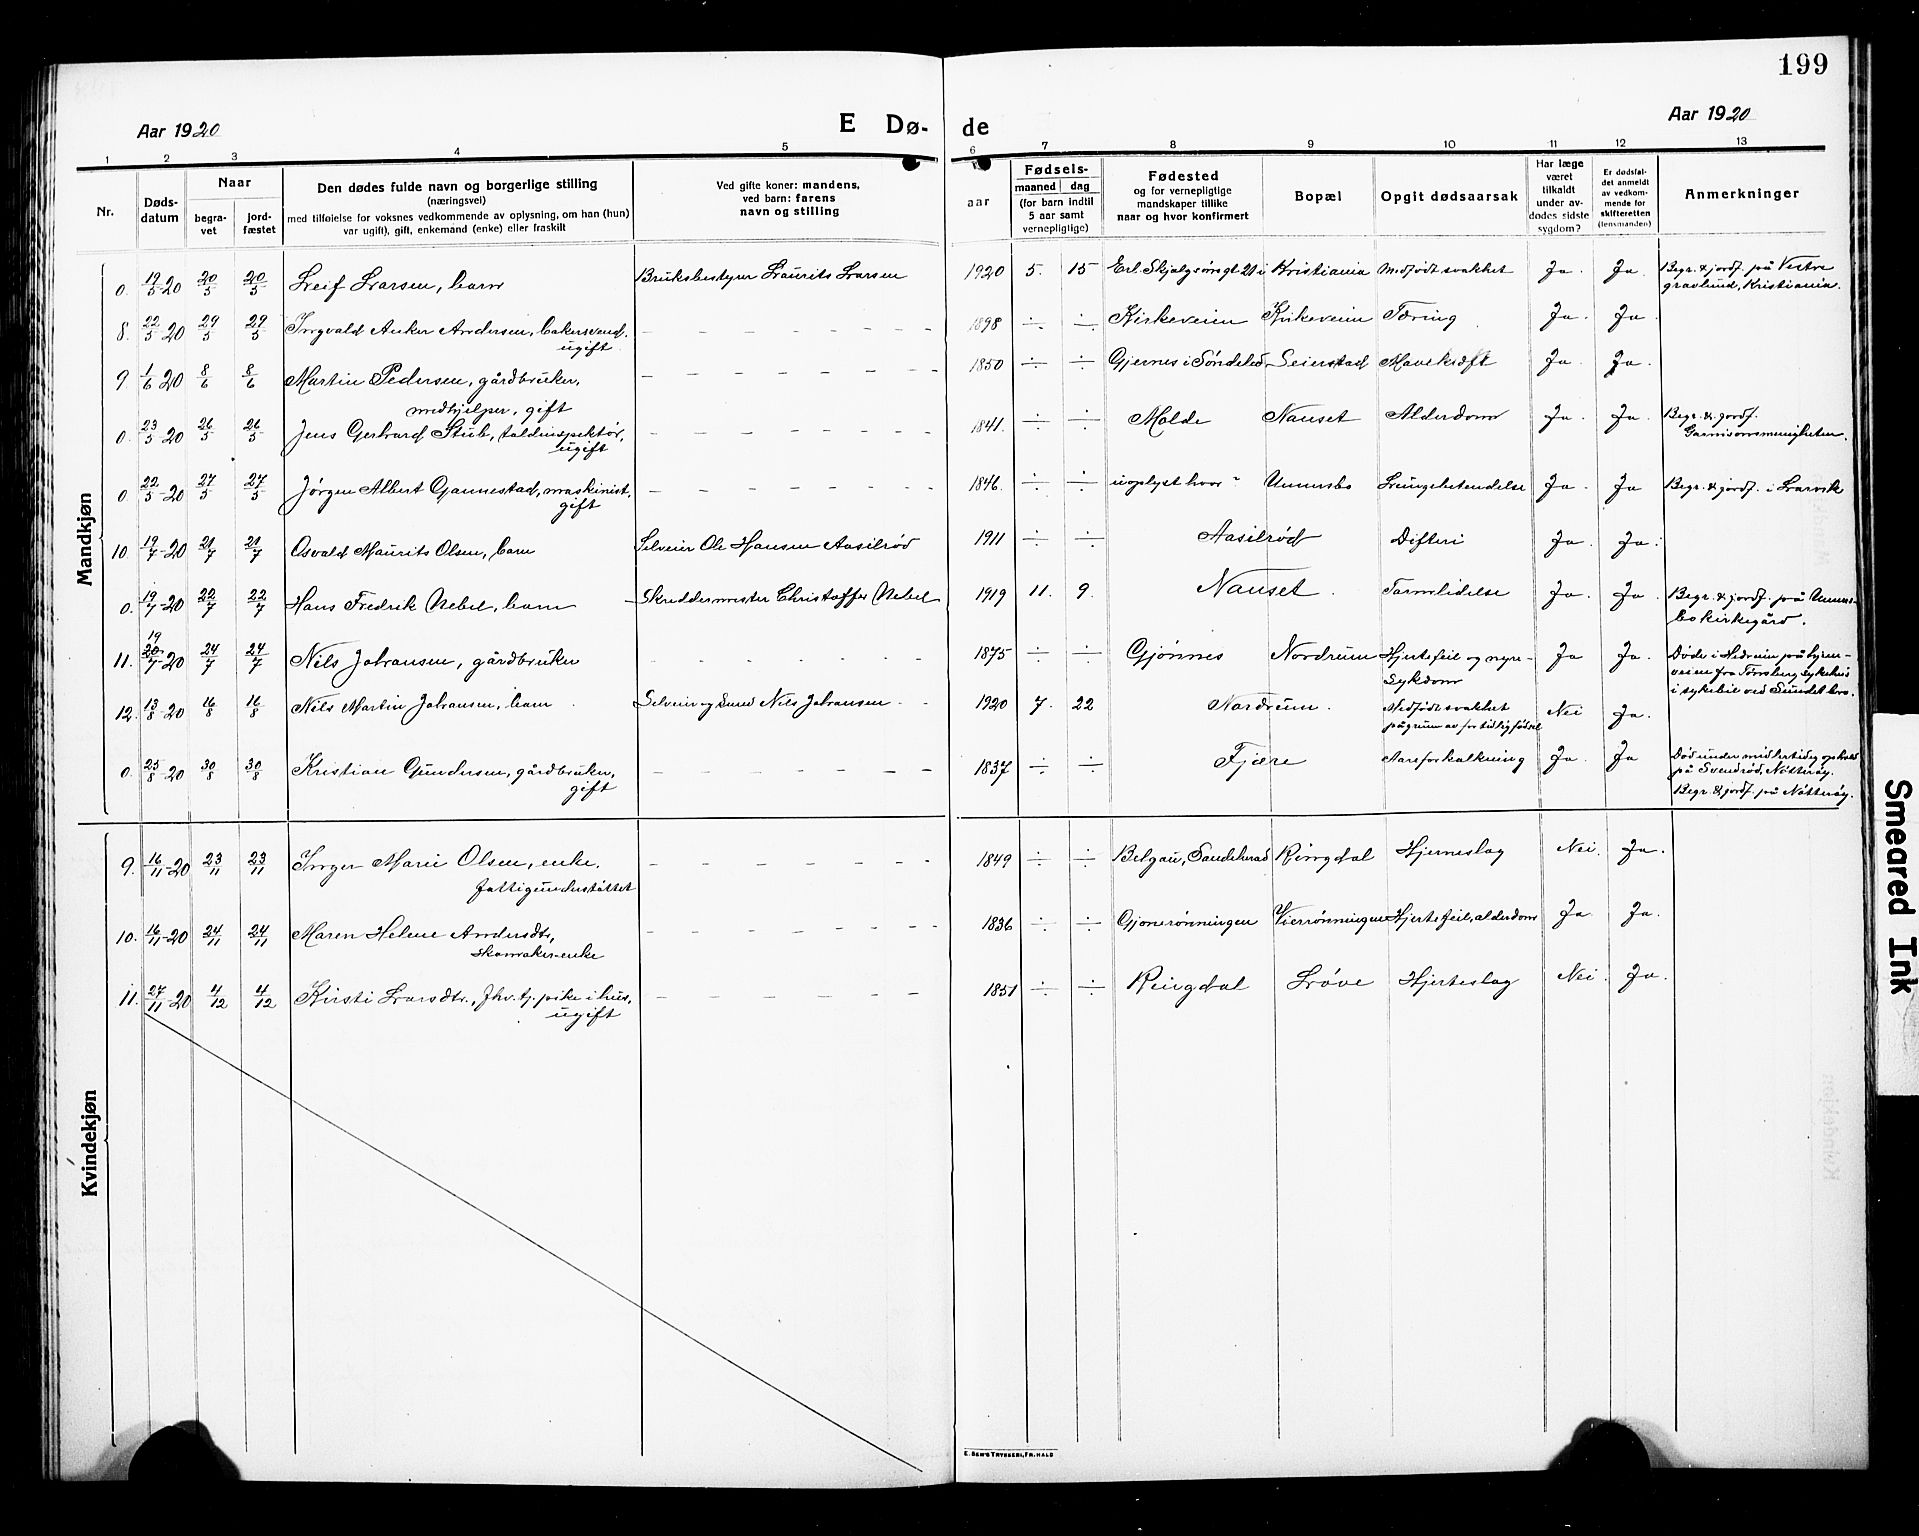 199
Aar 1920
E Dø- de
Aar 1920
1 2 3 4 5 6 7 8 9 10 11 12 13
Nr.
Døds-
datum
Naar
begra-
vet
jord-
fæstet
Den dødes fulde navn og borgerlige stilling
(næringsvei)
med tilføielse for voksnes vedkommende av oplysning, om han (hun)
var ugift), gift, enkemand (enke) eller fraskilt
Ved gifte koner: mandens,
ved barn: farens
navn og stilling
aar
Fødsels-
maaned dag
(for barn indtil
5 aar samt
vernepligtige)
Fødested
og for vernepligtige
mandskaper tillike
naar og hvor konfirmert
Bopæl
Opgit dødsaarsak
Har læge
været
tilkaldt
under av-
dødes sidste
sygdom?
Er dødsfal-
det anmeldt
av vedkom-
mende for
skifteretten
(lensmanden)
Anmerkninger
Mandkjøn
0. 19/5-20 20/5 20/5 Leif Larsen, barn Bruksbestyrer Laurits Larsen 1920 5. 15 Erl. Skjalgsønsgt 21 i Kristiania Medfødt svakhet Ja. Ja. Begr. & jordf. på Vestre
gravlund, Kristiania.
8. 22/5-20 29/5 29/5 Ingvald Anker Andersen, bakersvend. – – – – – – – – 1898 ÷ ÷ Kirkeveien Kirkeveien Tæring Ja. Ja.
ugift.
9. 1/6-20 8/6 8/6 Martin Pedersen, gårdbruker, – – – – – – – – 1850 ÷ ÷ Gjernes i Söndeled Seierstad Mavekræft Ja. Ja.
medhjelper, gift
0. 23/5-20 26/5 26/5 Jens Gerhard Stub, toldinspektør, – – – – – – – – 1841. ÷ ÷ Molde Nauset Alderdom Ja. Ja. Begr. & jordf.
ugift Garnisonsmenigheten.
0. 22/5-20 27/5 27/5 Jørgen Albert Gannestad, maskinist, – – – – – – – – 1846. ÷ ÷ uoplyst hvor Unnesbo Lungebetendelse Ja. Ja Begr. & jordf. i Larvik
gift
10 19/7-20 21/7 21/7 Osvald Maurits Olsen, barn Selveier Ole Hansen Aasilrød 1911 ÷ ÷ Aasilrød Difteri Ja. Ja.
0. 19/7-20 22/7 22/7 Hans Fredrik Nebel, barn Skreddermester Christoffer Nebel 1919 11. 9. Nauset. Tarmlidelse Ja. Ja. Begr. & jordf. på Unnes-
bo kirkegård.
11. 19 20/7-20 24/7 24/7 Nils Johansen, gårdbruker – – – – – – – – 1875 ÷ ÷ Gjønnes Nordrum Hjertefeil og nyre- Ja Ja. Døde i Hedrum på hjem-
sykdom veien fra Tønsberg sykehus
i sykebil ved Sundet bro.
12. 13/8-20 16/8 16/8 Nils Martin Johansen, barn Selveier og Nils Johansen 1920 7. 22 Nordrum. Medfødt svakhet Nei Ja.
på grunn av for tidlig fødsel
0. 25/8-20 30/8 30/8 Kristian Gundersen, gårdbruker, – – – – – – – – 1837 ÷ ÷ Fjære Aareforkalkning Ja. Ja Død under midlertidig ophold
gift på Svendrød, Nötteröy.
Begr. & jordf. på Nötteröy.
Kvindekjøn
9. 16/11-20 23/11 23/11 Inger Marie Olsen, enke. – – – – – – – – 1849 ÷ ÷ Belgau, Sandeherad Ringdal Hjerneslag Nei. Ja.
fattigunderstöttet
10. 16/11-20 24/11 24/11 Maren Helene Andersdtr, – – – – – – – – 1836 ÷ ÷ Gjonerønningen Vierrønningen Hjertefeil, alderdom Ja Ja.
skomaker-enke
11. 27/11-20 4/12 4/12 Kirsti Larsdtr., fhv. tj. pike i hus, – – – – – – – – 1851 ÷ ÷ Ringdal Løve Hjerteslag Nei. Ja.
ugift
E. SEM'S TRYKKERI, FR.HALD
Smeared Ink